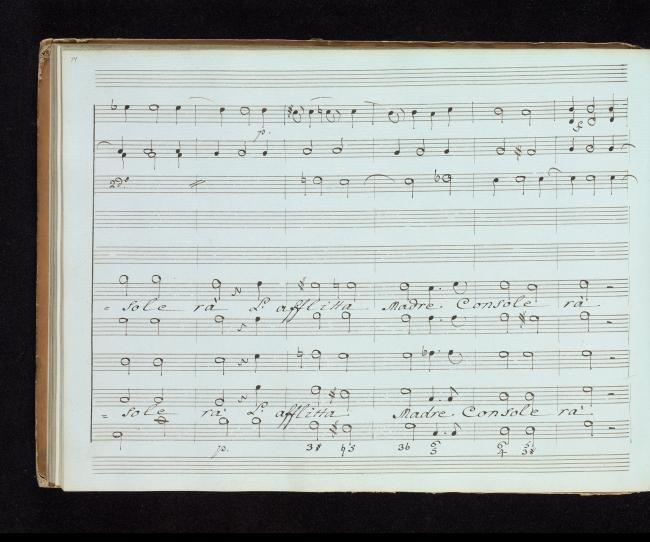 p.
2do
= sole ra L' afflitta Madre. Console ra.
= sole ra L' afflitta Madre. Console ra.
p. 3# ♮3 3b 6 3 6 4 5 3#